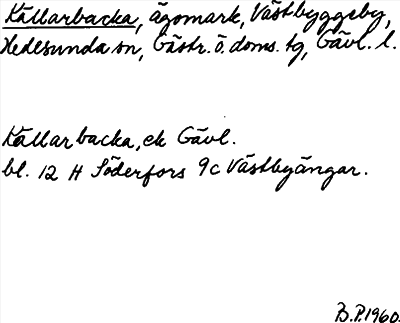 Källarbacka, ägomark, Västbyggeby,
Hedesunda sn, Gästr. ö. doms. tg, Gävl. l.
Källarbacka, ek Gävl.
bl. 12 H Söderfors 9c Västbyängar.
B.P. 1960.